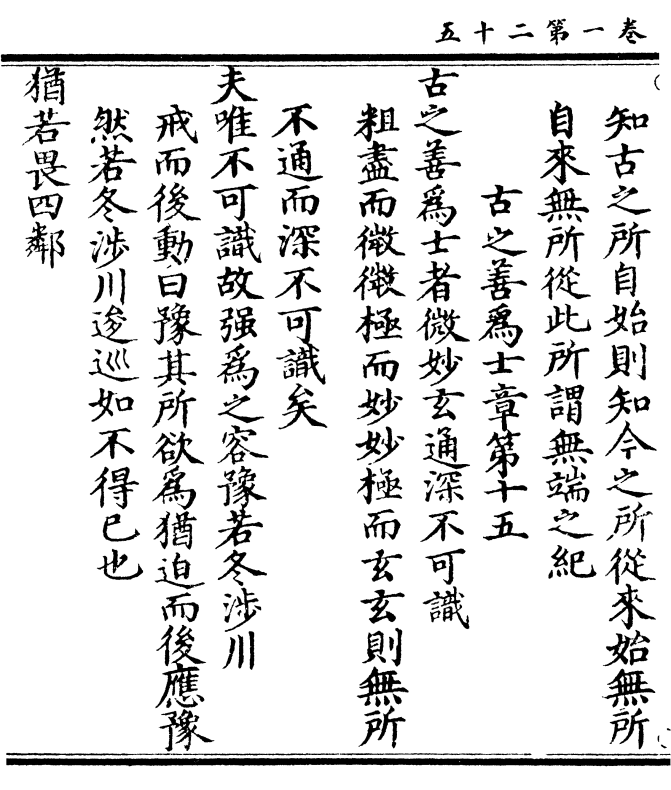 卷一第二十五
知古之所自始則知今之所從來始無所
自來無所從此所謂無端之紀
古之善爲士章第十五
古之善爲士者微妙玄通深不可識
粗盡而微微極而妙妙極而玄玄則無所
不通而深不可識矣
夫唯不可識故强爲之容豫若冬涉川
戒而後動曰豫其所欲爲猶迫而後應豫
然若冬涉川逡巡如不得已也
猶若畏四鄰